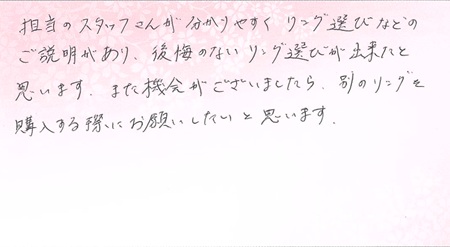 担当のスタッフさんが分かりやすく リング選びなどの
ご説明があり、後悔のないリング選びが出来たと
思います。また機会がございましたら、別のリングを
購入する際にお願いしたいと思います。